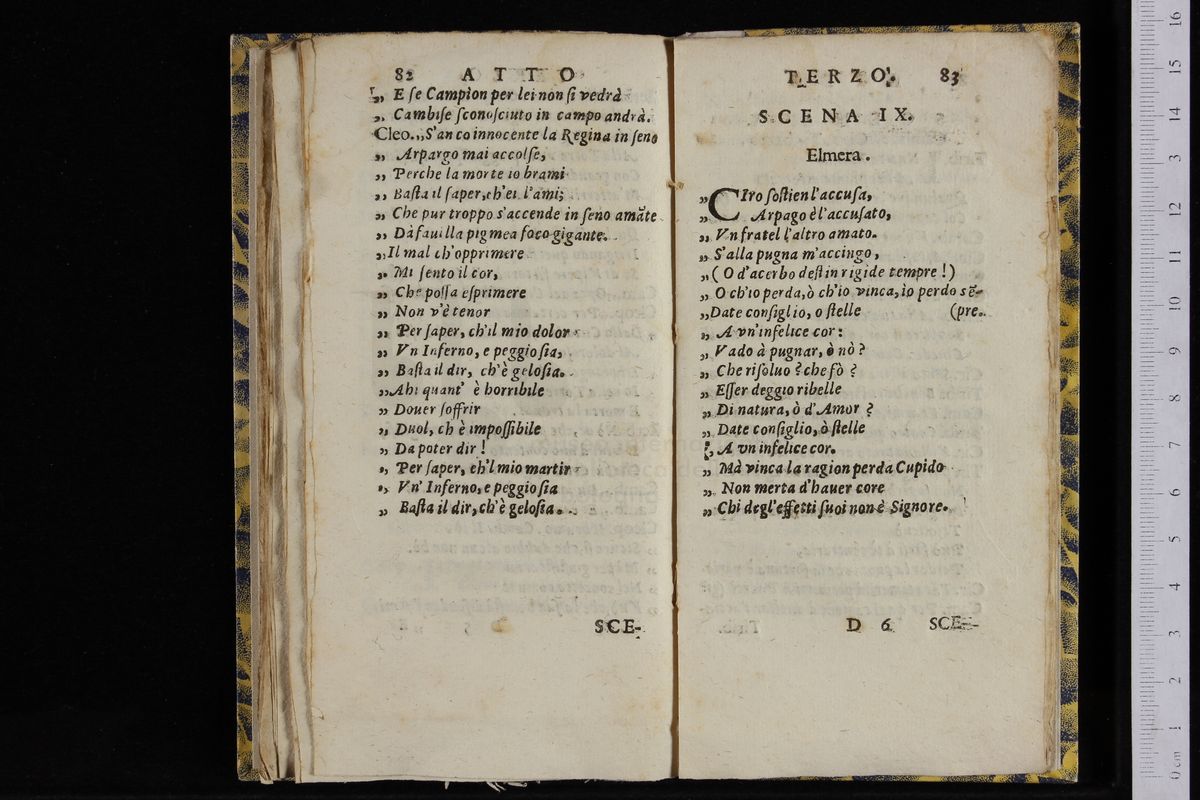 82 ATTO
„ E ſe Campion per lei non ſi vedrà
„ Cambiſe ſconoſciuto in campo andrà.
Cleo. „ S'anco innocente la Regina in ſeno
„ Arpargo mai accolſe,
„ Perche la morte io brami
„ Baſta il ſaper, ch'ei l'ami;
„ Che pur troppo s'accende in ſeno amãte
„ Dà fauilla pigmea foco gigante.
„ Il mal ch'opprimere
„ Mi ſento il cor,
„ Che poſſa eſprimere
„ Non v'è tenor
„ Per ſaper, ch'il mio dolor
„ Vn Inferno, e peggio ſia,
„ Baſta il dir, ch'è geloſia.
„ Ahi quant' è horribile
„ Douer ſoffrir
„ Duol, ch è impoſſibile
„ Da poter dir!
„ Per ſaper, ch'l mio martir
„ Vn' Inferno, e peggio ſia
„ Baſta il dir, ch'è geloſia.
SCE-
TERZO. 83
SCENA IX.
Elmera.
„ CIro ſoſtien l'accuſa,
„ Arpago è l'accuſato,
„ Vn fratel l'altro amato.
„ S'alla pugna m'accingo,
„ (O d'acerbo deſtin rigide tempre!)
„ O ch'io perda, ò ch'io vinca, io perdo sẽ-
„ Date conſiglio, o ſtelle (pre.
„ A vn'infelice cor:
„ Vado à pugnar, ò nò?
„ Che riſoluo? che fò?
„ Eſſer deggio ribelle
„ Di natura, ò d'Amor?
„ Date conſiglio, ò ſtelle
„ A vn infelice cor.
„ Mà vinca la ragion perda Cupido
„ Non merta d'hauer core
„ Chi degl'effetti ſuoi non è Signore.
D 6 SCE-
0 cm 1 2 3 4 5 6 7 8 9 10 11 12 3 14 15 16